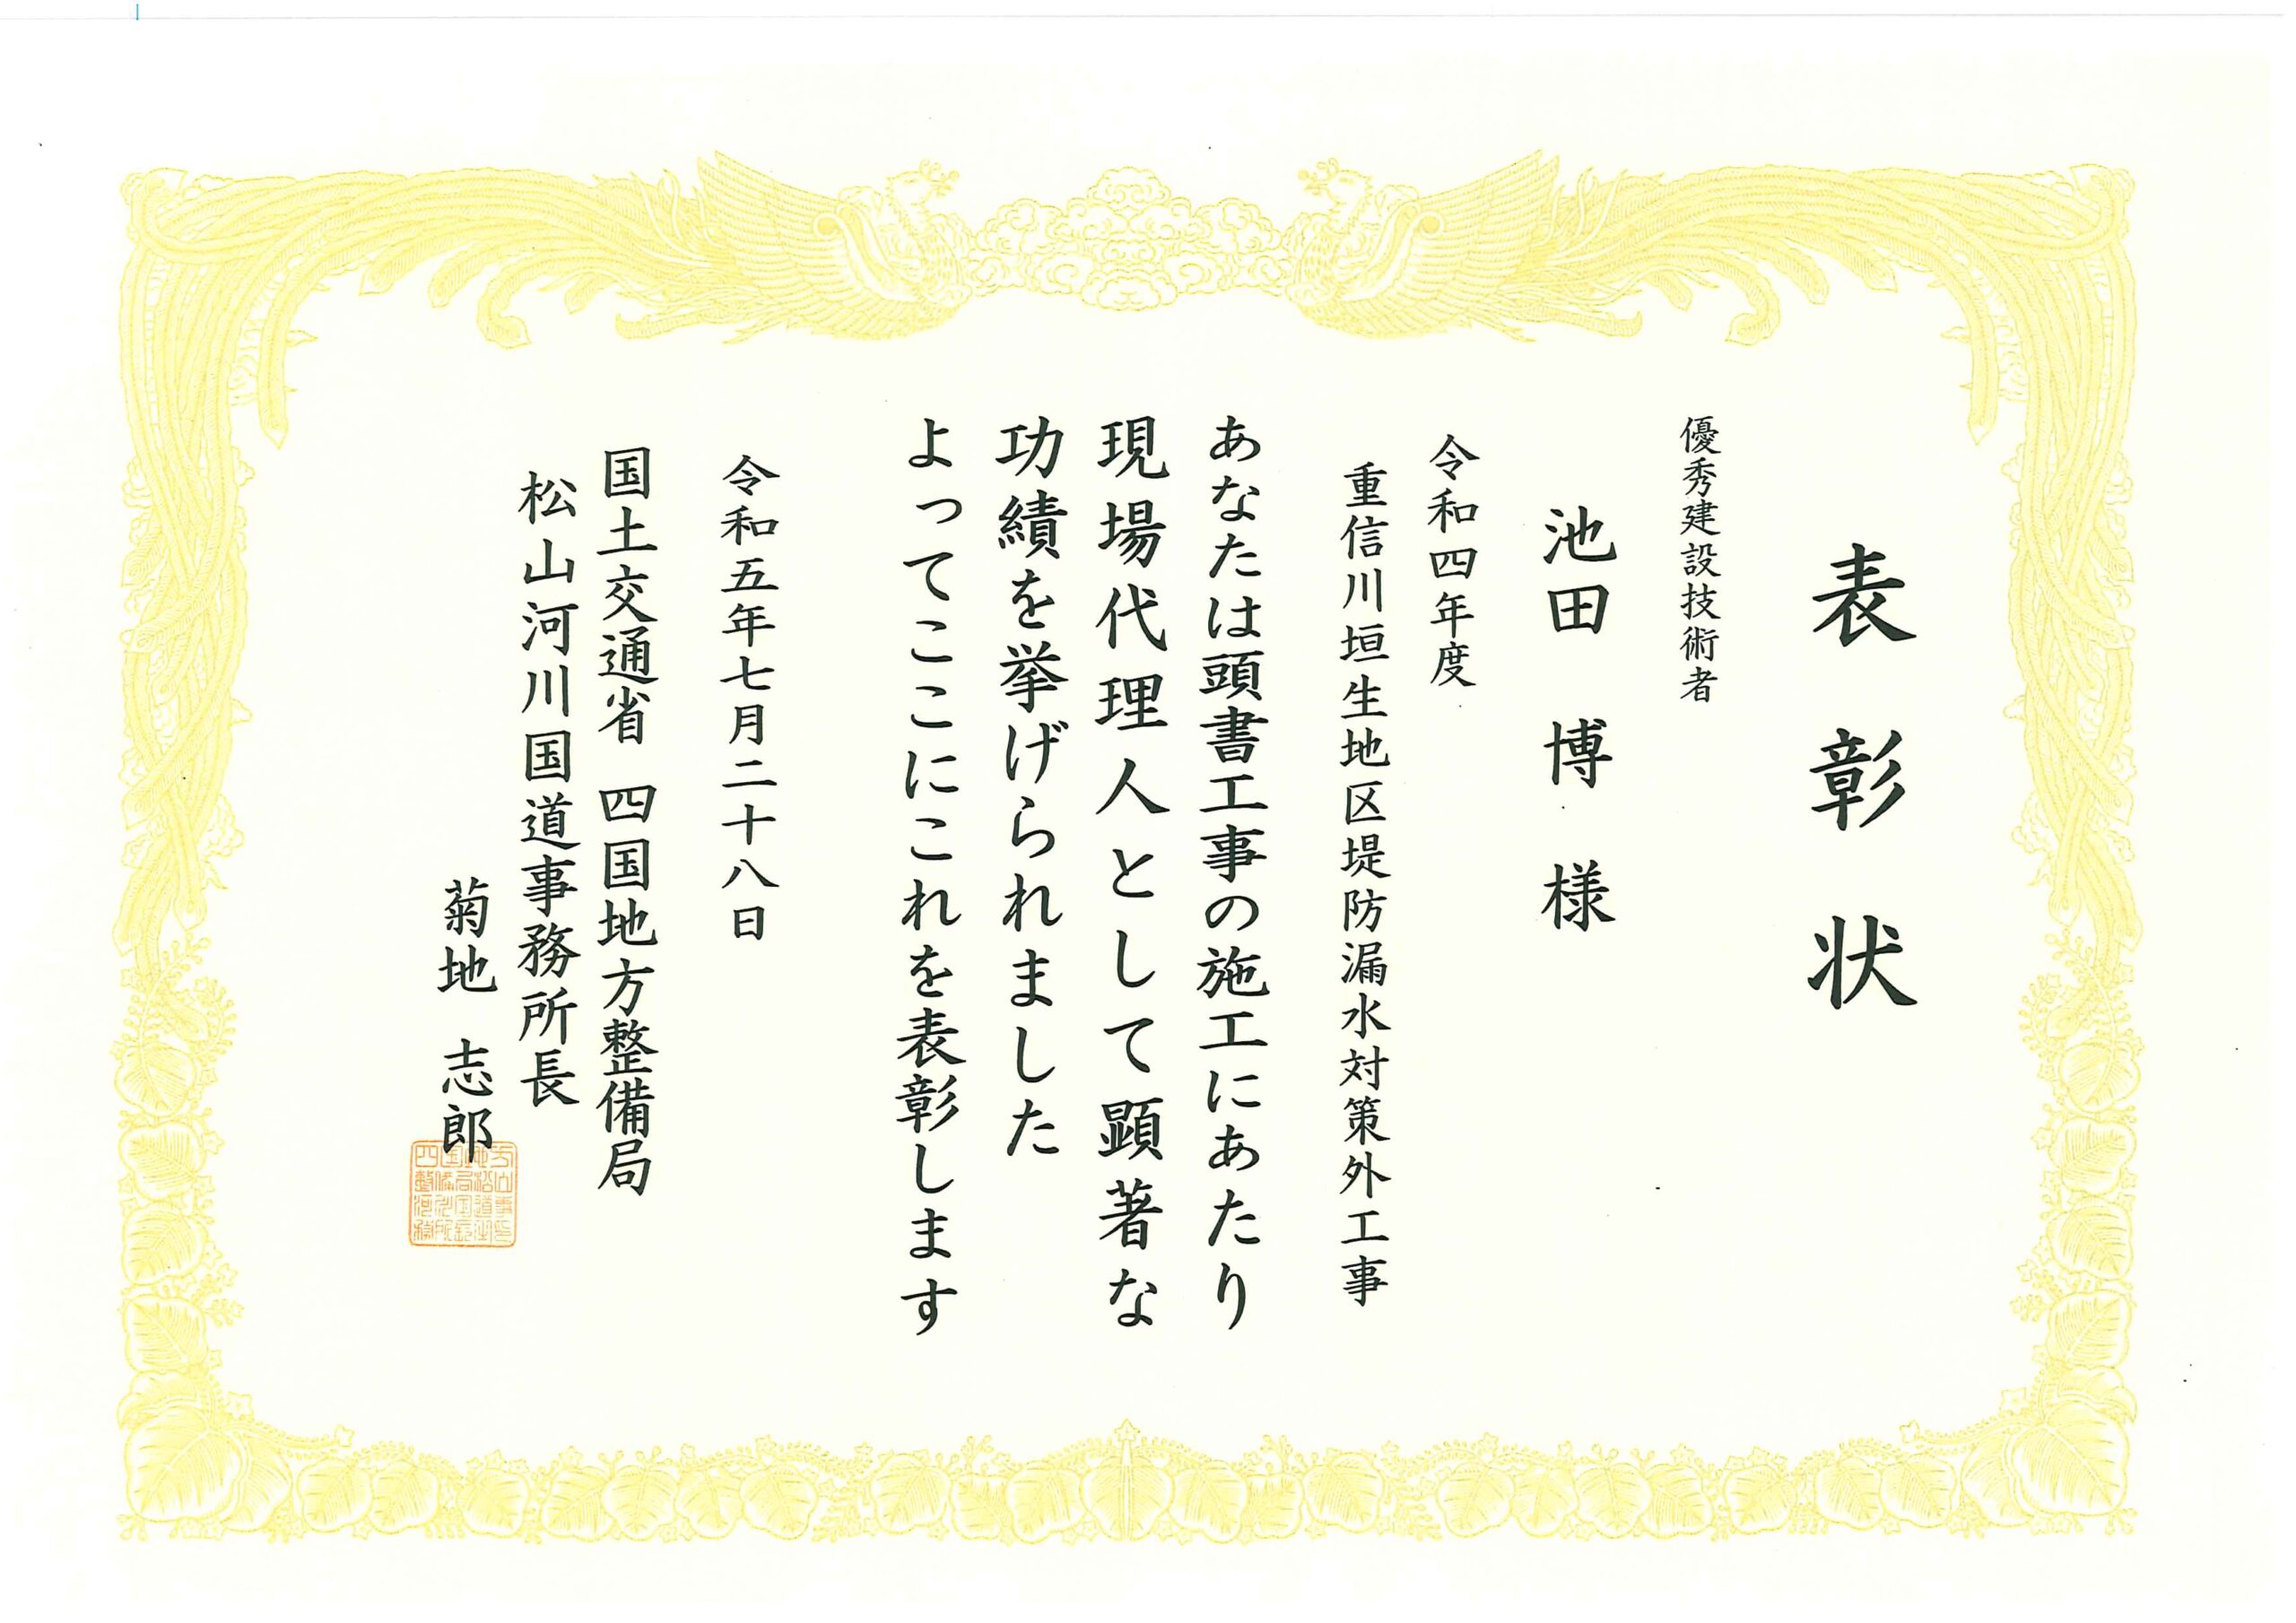 表彰状
優秀建設技術者
池田 博 様
令和四年度
重信川垣生地区堤防漏水対策外工事
あなたは頭書工事の施工にあたり
現場代理人として顕著な
功績を挙げられました
よってここにこれを表彰します
令和五年七月二十八日
国土交通省 四国地方整備局
松山河川国道事務所長
菊地 志郎